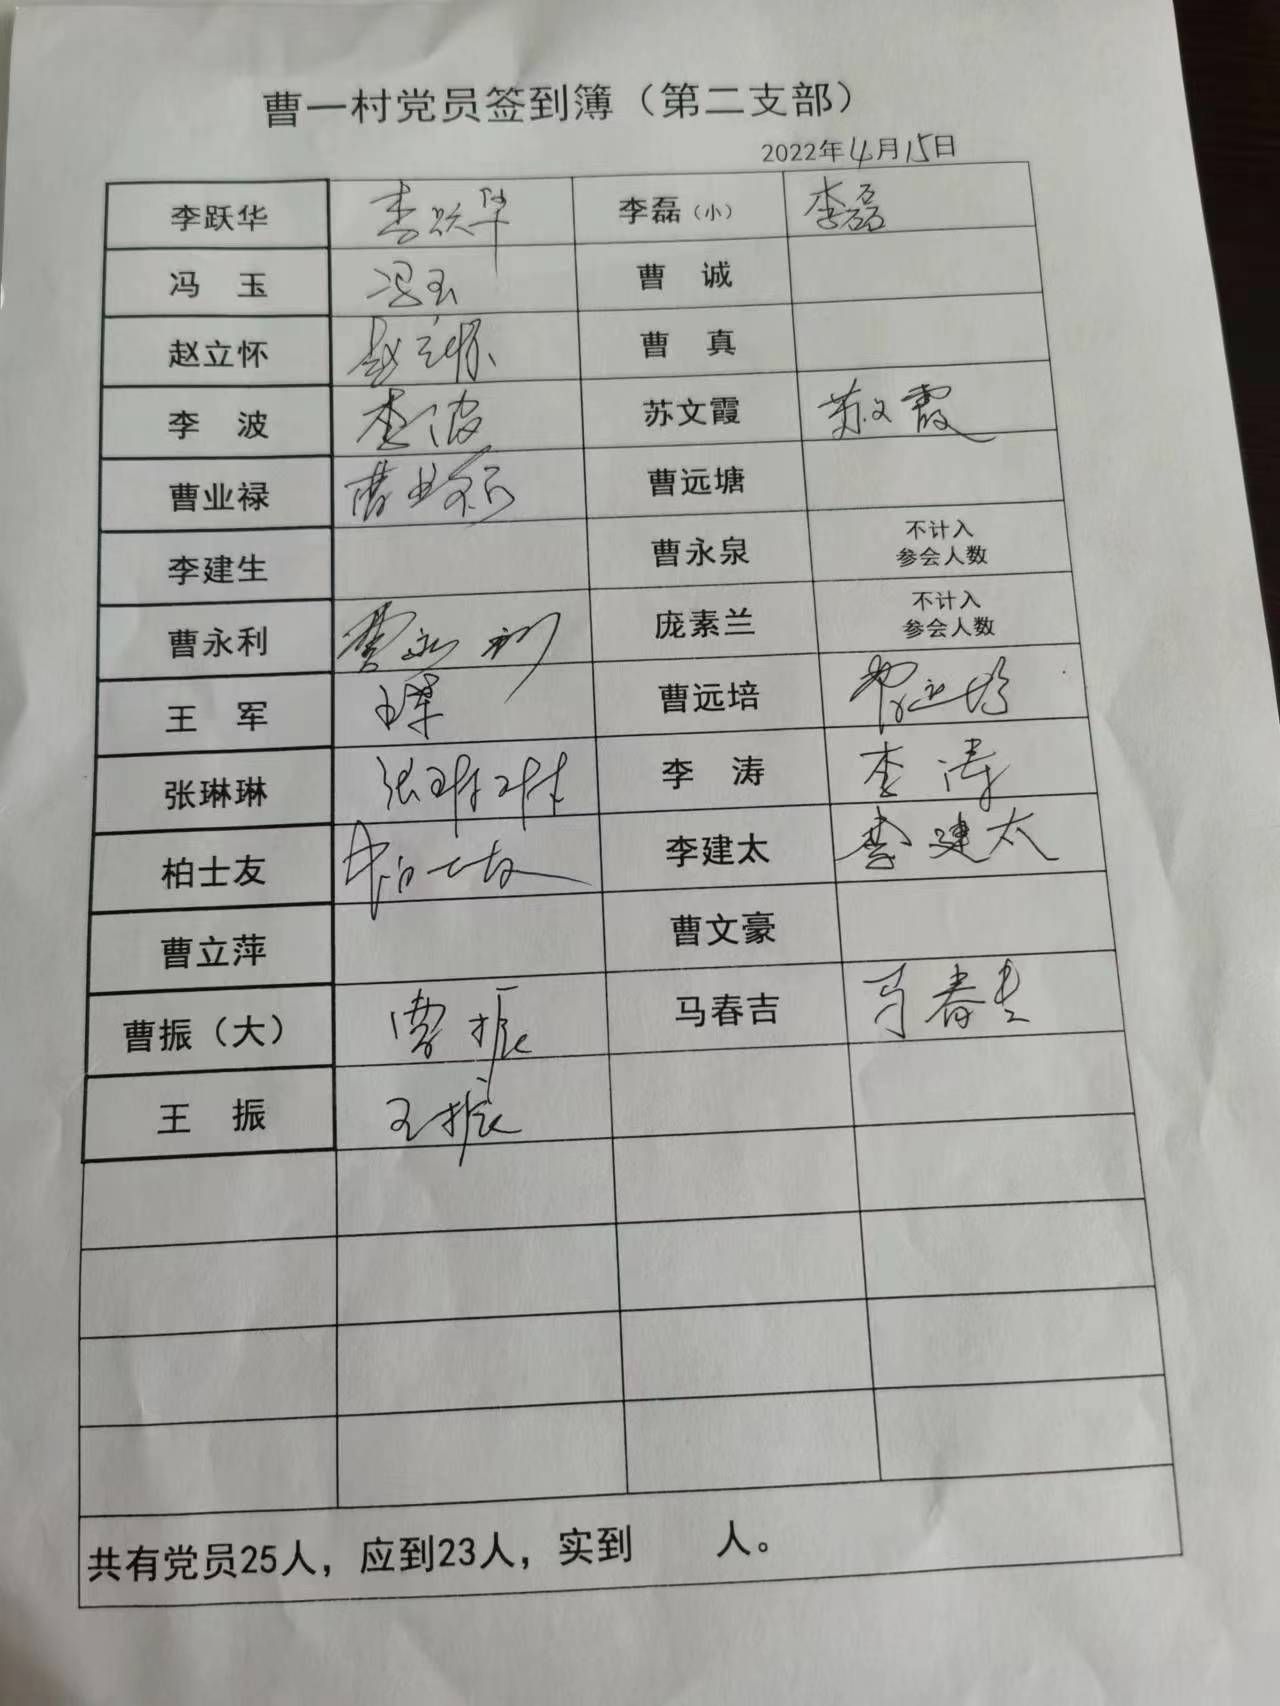 曹一村党员签到簿（第二支部）
2022年4月15日
李跃华 李跃华 李磊（小） 李磊
冯　玉 冯玉 曹　诚
赵立怀 赵立怀 曹　真
李　波 李波 苏文霞 苏文霞
曹业禄 曹业禄 曹远塘
李建生 曹永泉 不计入
参会人数
曹永利 曹永利 庞素兰 不计入
参会人数
王　军 王军 曹远培 曹远培
张琳琳 张琳琳 李　涛 李涛
柏士友 柏士友 李建太 李建太
曹立萍 曹文豪
曹振（大） 曹振 马春吉 马春吉
王　振 王振
共有党员25人，应到23人，实到　　人。